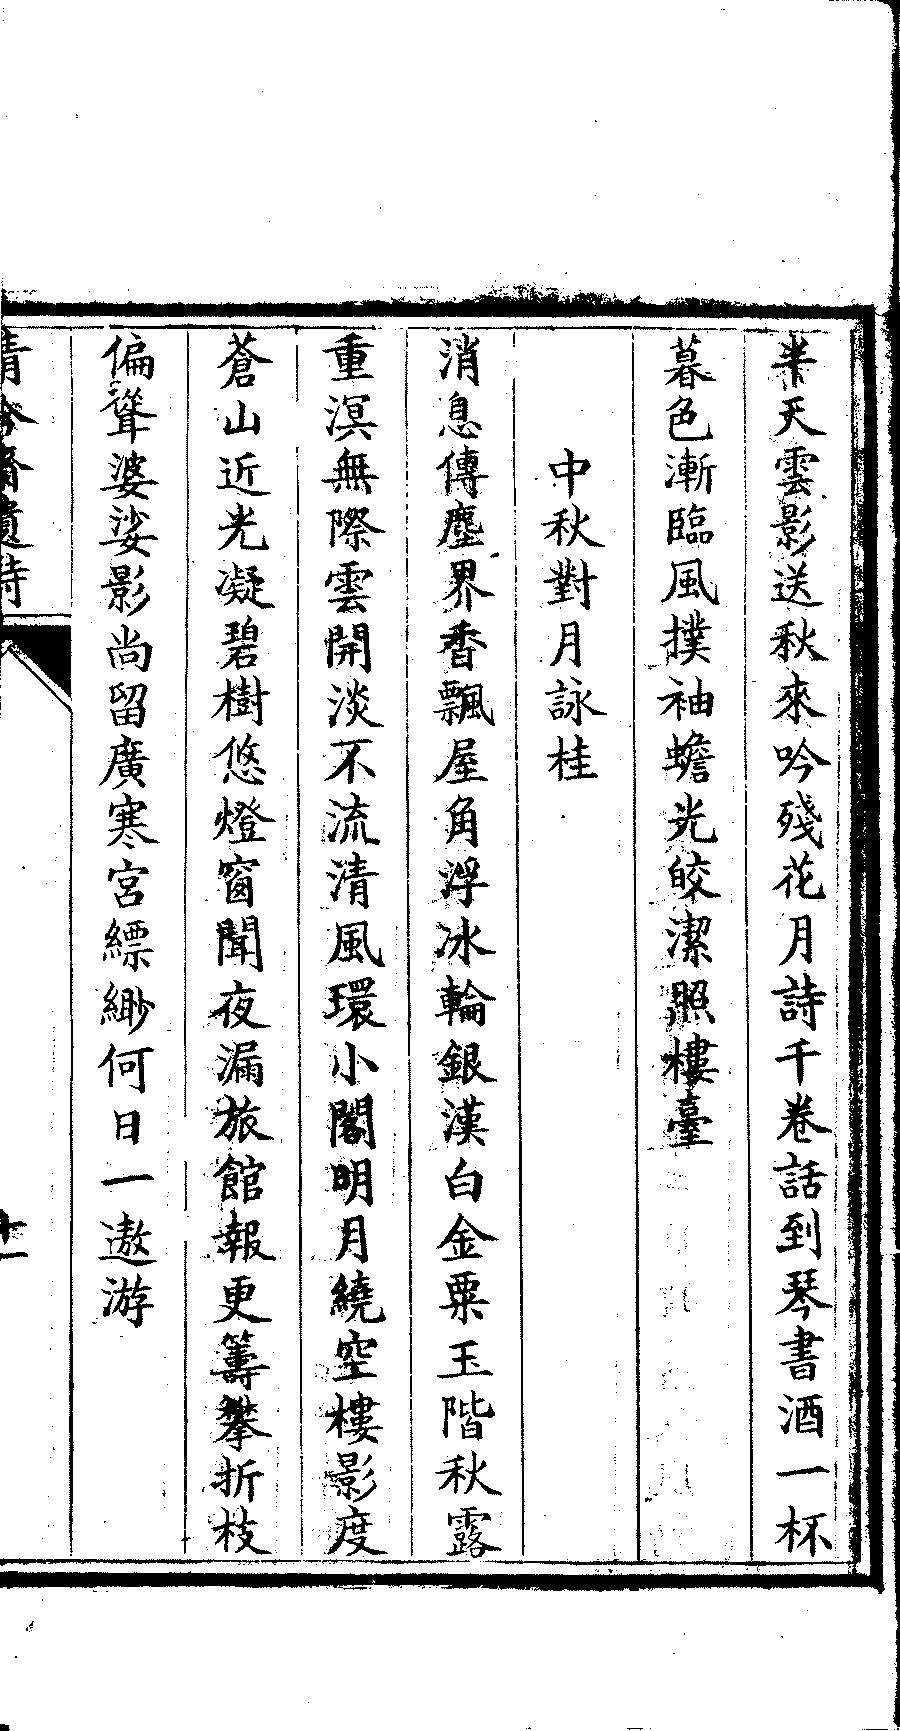 半天雲影送秋來吟殘花月詩千卷話到琴書酒一杯
暮色漸臨風撲袖蟾光皎潔照樓臺
中秋對月詠桂
消息傳塵界香飄屋角浮冰輪銀漢白金粟玉階秋露
重溟無際雲開淡不流清風環小閣明月繞空樓影度
蒼山近光凝碧樹悠燈窗聞夜漏旅館報更籌攀折枝
偏聳婆娑影尚留廣寒宮縹緲何日一遨游
清吟齋遺詩
十一